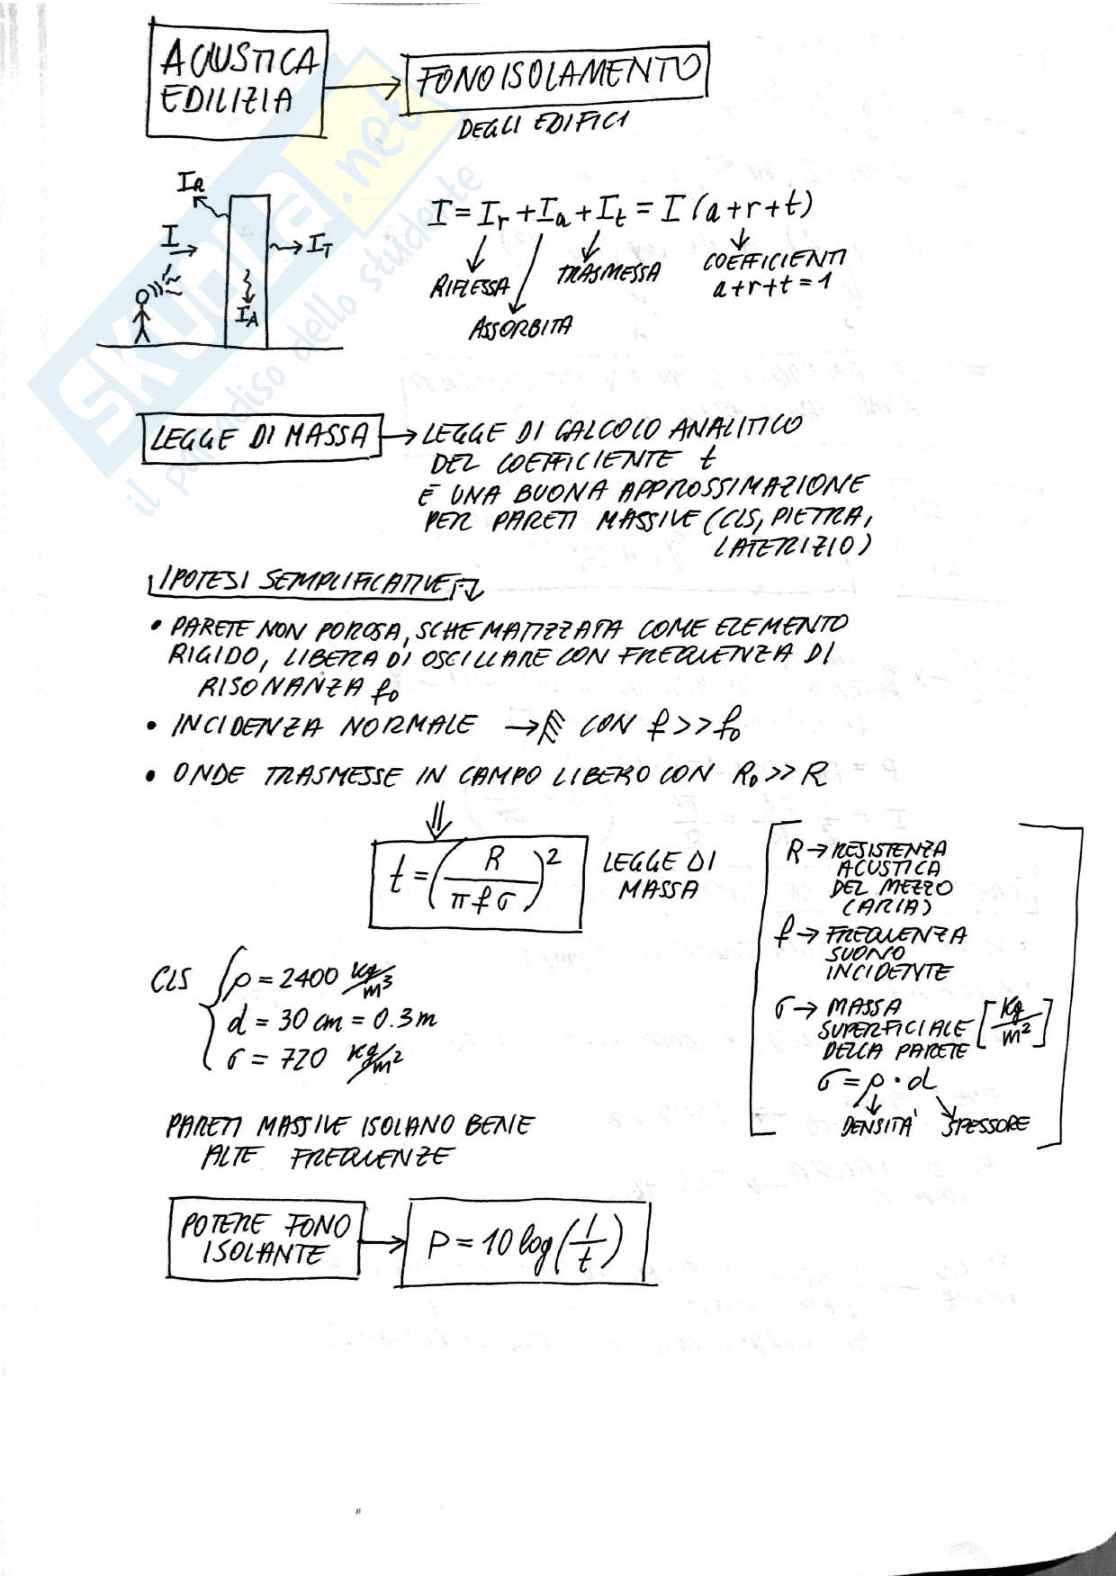 ACUSTICA
EDILIZIA
FONOISOLAMENTO
DEGLI EDIFICI
I_R
I
I_T
I_A
I = I_r + I_a + I_t = I (a+r+t)
RIFLESSA
TRASMESSA
COEFFICIENTI
a+r+t=1
ASSORBITA
LEGGE DI MASSA → LEGGE DI CALCOLO ANALITICO
DEL COEFFICIENTE t
È UNA BUONA APPROSSIMAZIONE
PER PARETI MASSIVE (CLS, PIETRA,
LATERIZIO)
IPOTESI SEMPLIFICATIVE
• PARETE NON POROSA, SCHEMATIZZATA COME ELEMENTO
RIGIDO, LIBERA DI OSCILLARE CON FREQUENZA DI
RISONANZA f₀
• INCIDENZA NORMALE → CON f >> f₀
• ONDE TRASMESSE IN CAMPO LIBERO CON R₀ >> R
⇓
t = (R / π f σ)²
LEGGE DI
MASSA
R → RESISTENZA
ACUSTICA
DEL MEZZO
(ARIA)
f → FREQUENZA
SUONO
INCIDENTE
σ → MASSA
SUPERFICIALE [Kg/m²]
DELLA PARETE
σ = ρ · d
DENSITÀ SPESSORE
CLS { ρ = 2400 kg/m³
d = 30 cm = 0.3 m
σ = 720 kg/m²
PARETI MASSIVE ISOLANO BENE
ALTE FREQUENZE
POTERE FONO
ISOLANTE
P = 10 log (1/t)
SKUOLA.net
il paradiso dello studente